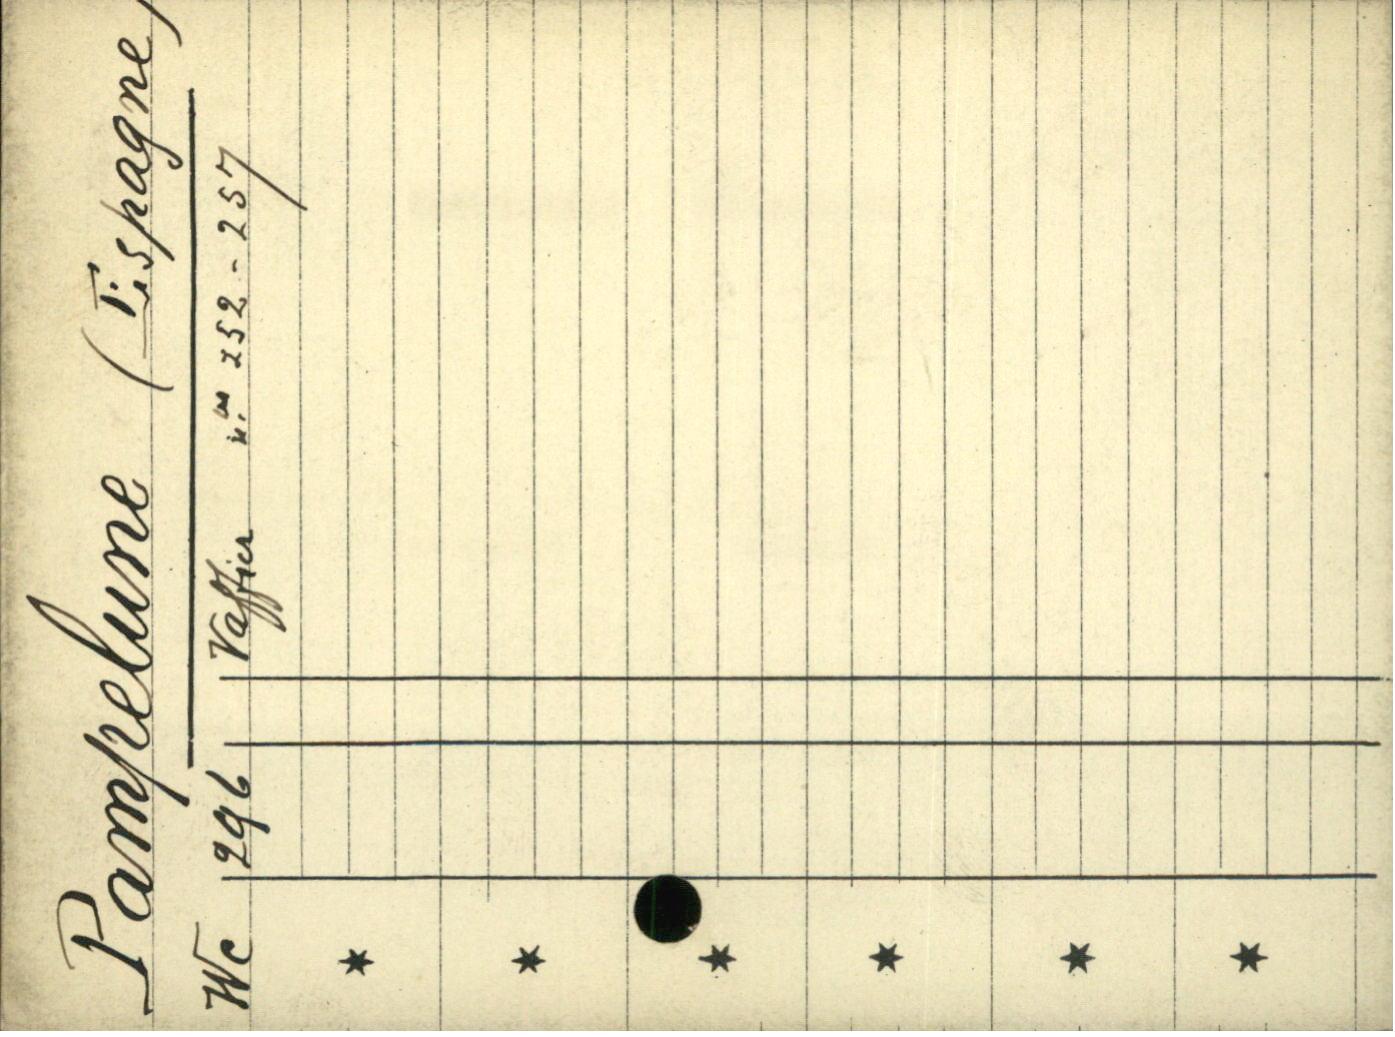 Pampelune (Espagne)
We 296 Vaffier n.os 252 - 257